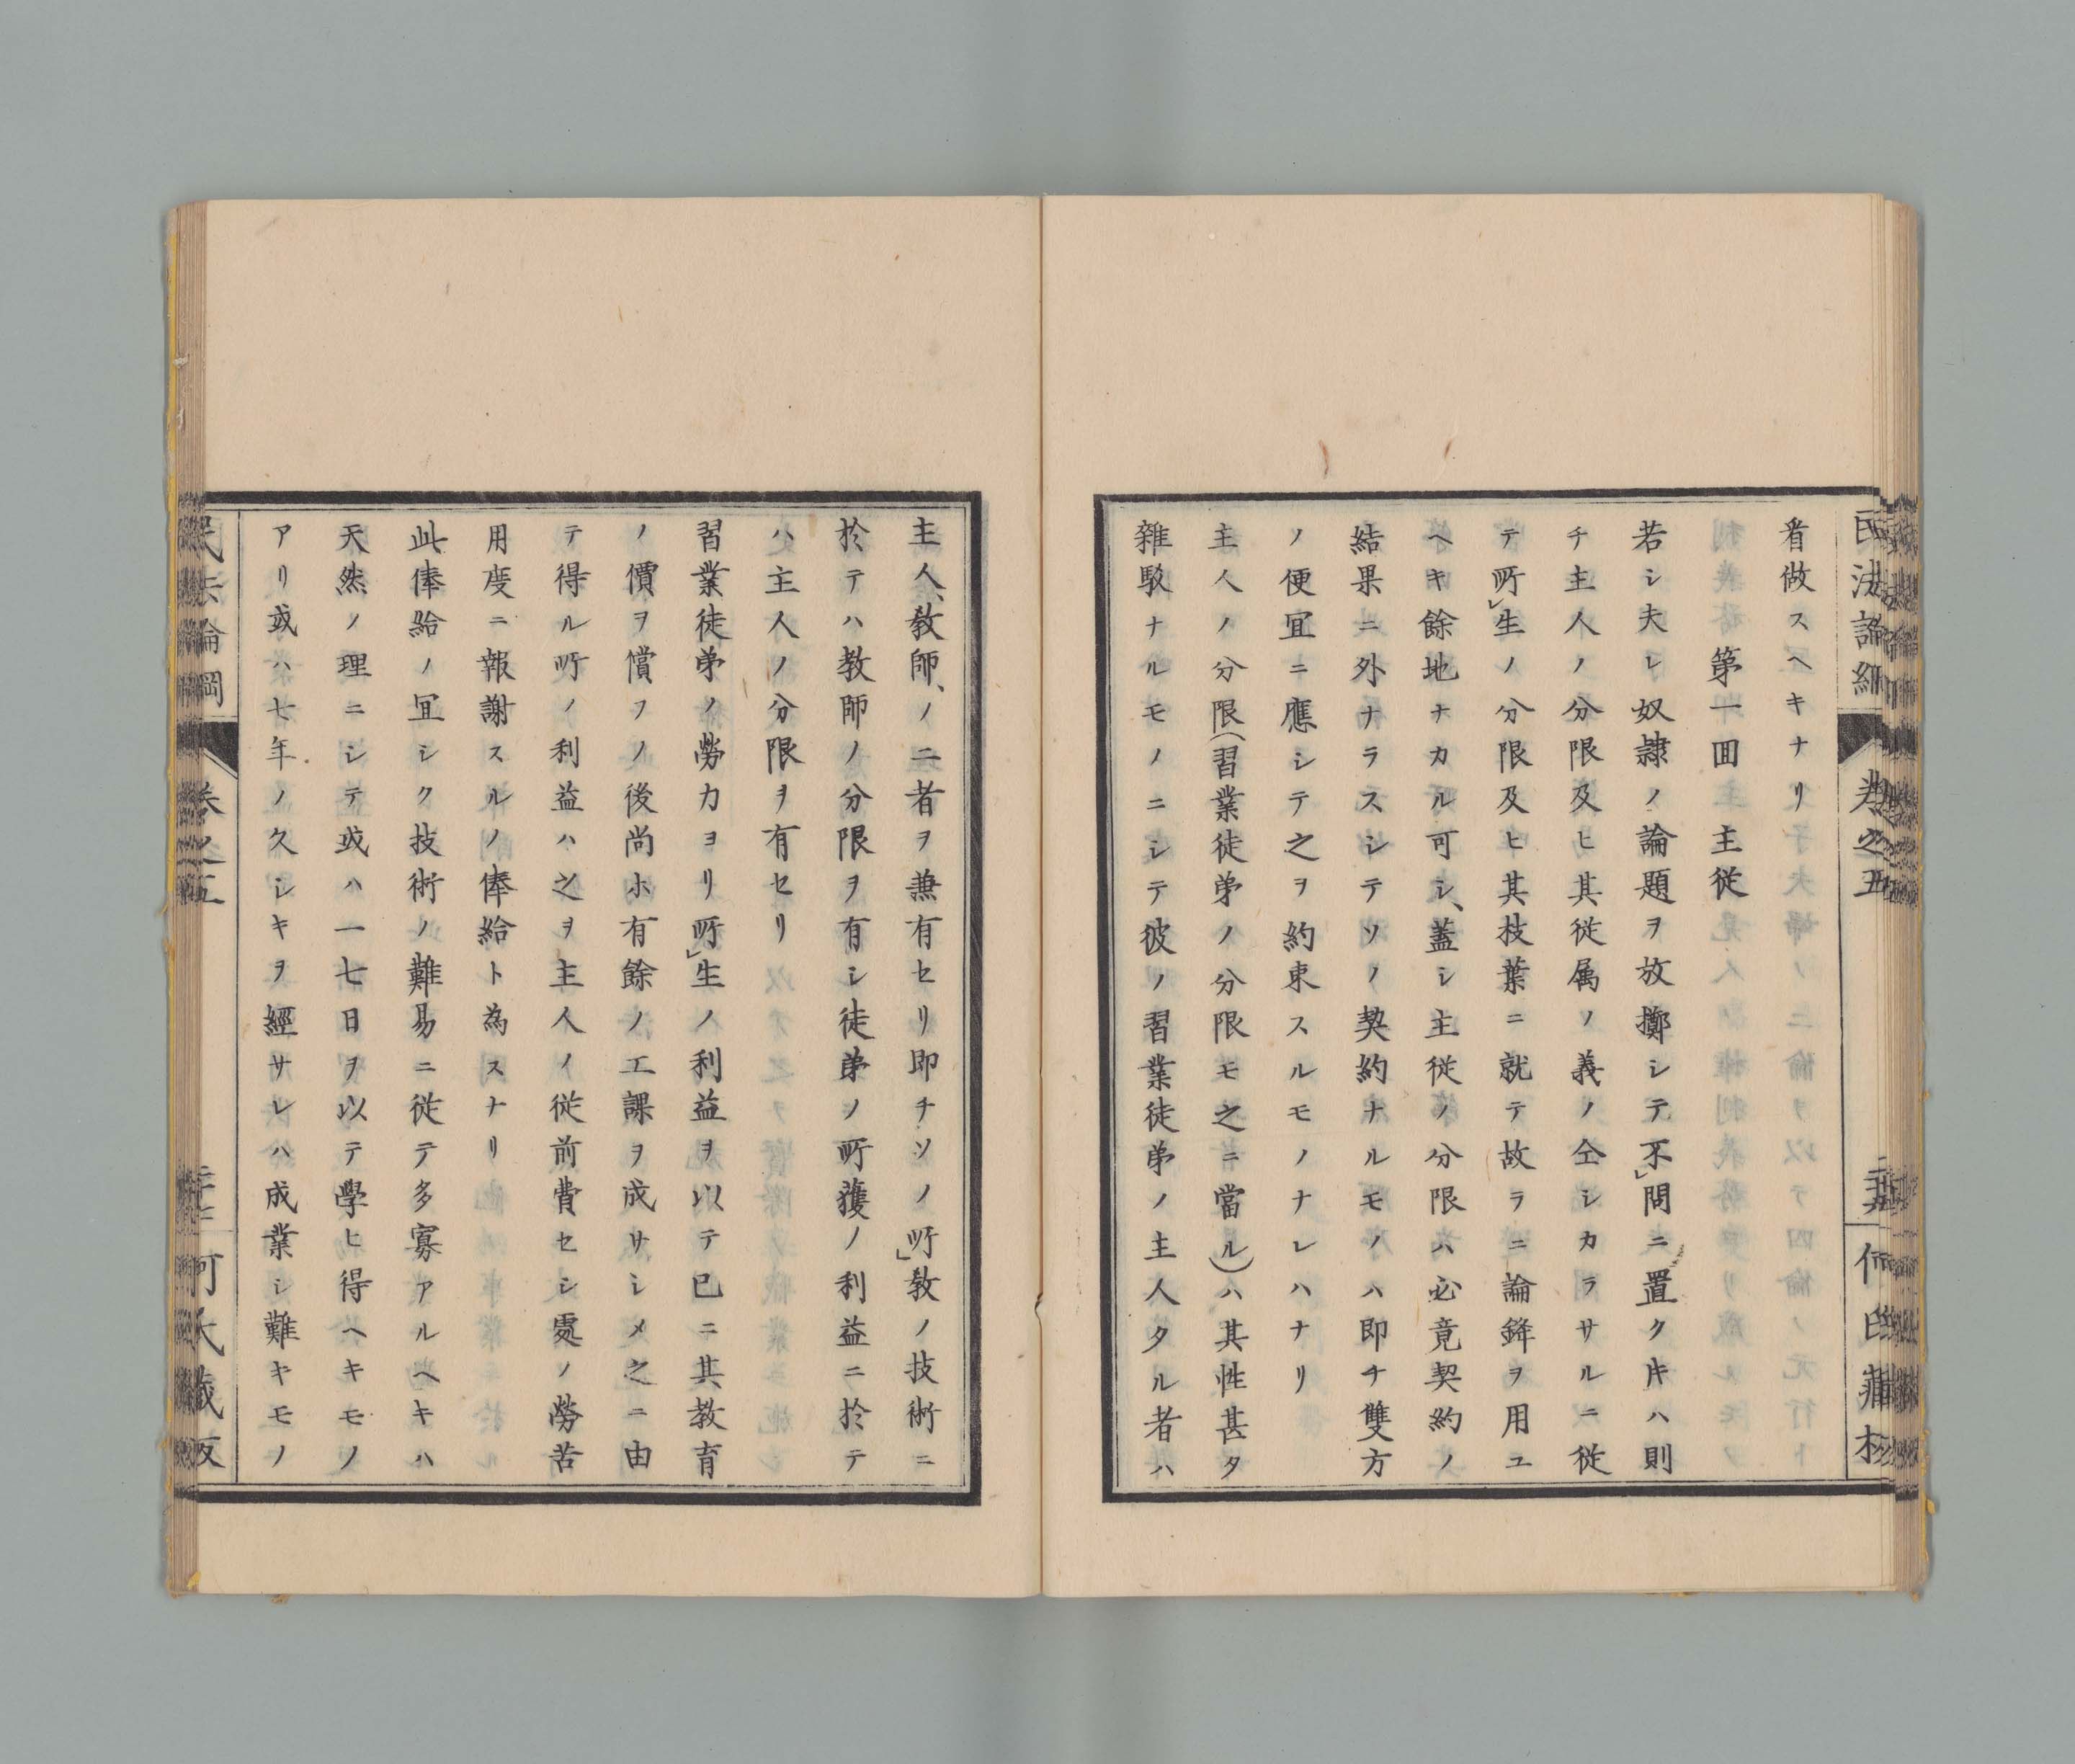 看做スヘキナリ
第一回主従
若シ夫レ奴隷ノ論題ヲ放擲シテ不」問ニ置ク𪜈ハ則
チ主人ノ分限及ヒ其従属ノ義ノ仝シカラサルニ従
テ所」生ノ分限及ヒ其枝葉ニ就テ故ラニ論鋒ヲ用ユ
ヘキ餘地ナカル可シ、蓋シ主従ノ分限ハ必竟契約ノ
結果ニ外ナラスシテソノ契約ナルモノハ即チ雙方
ノ便宜ニ應シテ之ヲ約束スルモノナレハナリ
主人ノ分限(習業徒弟ノ分限モ之ニ當ル)ハ其性甚タ
雑駁ナルモノニシテ彼ノ習業徒弟ノ主人タル者ハ
主人、教師、ノ二者ヲ兼有セリ即チソノ所」教ノ技術ニ
於テハ教師ノ分限ヲ有シ徒弟ノ所獲ノ利益ニ於テ
ハ主人ノ分限ヲ有セリ
習業徒弟ノ勞力ヨリ所」生ノ利益ヲ以テ已ニ其教育
ノ價ヲ償フノ後尚ホ有餘ノ工課ヲ成サシメ之ニ由
テ得ル所ノ利益ハ之ヲ主人ノ従前費セシ處ノ勞苦
用度ニ報謝スルノ俸給ト為スナリ
此俸給ノ宜シク技術ノ難易ニ従テ多寡アルヘキハ
天然ノ理ニシテ或ハ一七日ヲ以テ學ヒ得ヘキモノ
アリ或ハ七年ノ久シキヲ經サレハ成業シ難キモノ
民法論綱
巻之五
何氏藏板